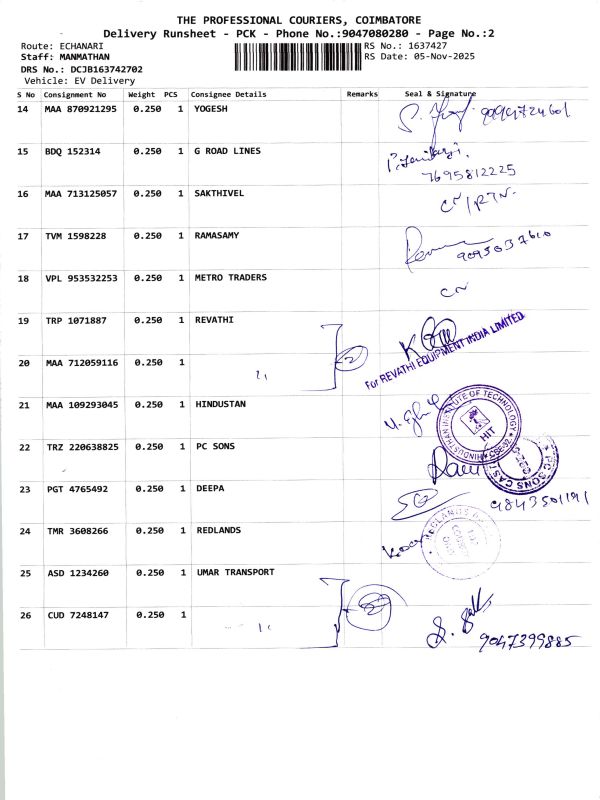 THE PROFESSIONAL COURIERS, COIMBATORE
Delivery Runsheet - PCK - Phone No.:9047080280 - Page No.:2
Route: ECHANARI
Staff: MANMATHAN
DRS No.: DCJB163742702
Vehicle: EV Delivery
RS No.: 1637427
RS Date: 05-Nov-2025
S No Consignment No Weight PCS Consignee Details Remarks Seal & Signature
14 MAA 870921295 0.250 1 YOGESH
15 BDQ 152314 0.250 1 G ROAD LINES
7695812225
16 MAA 713125057 0.250 1 SAKTHIVEL
17 TVM 1598228 0.250 1 RAMASAMY
18 VPL 953532253 0.250 1 METRO TRADERS
19 TRP 1071887 0.250 1 REVATHI
For REVATHI EQUIPMENT INDIA LIMITED
20 MAA 712059116 0.250 1 "
2
21 MAA 109293045 0.250 1 HINDUSTAN
HINDUSTHAN INSTITUTE OF TECHNOLOGY
HIT
22 TRZ 220638825 0.250 1 PC SONS
PC SONS
23 PGT 4765492 0.250 1 DEEPA
9843501191
24 TMR 3608266 0.250 1 REDLANDS
25 ASD 1234260 0.250 1 UMAR TRANSPORT
26 CUD 7248147 0.250 1 "
2
9047399885